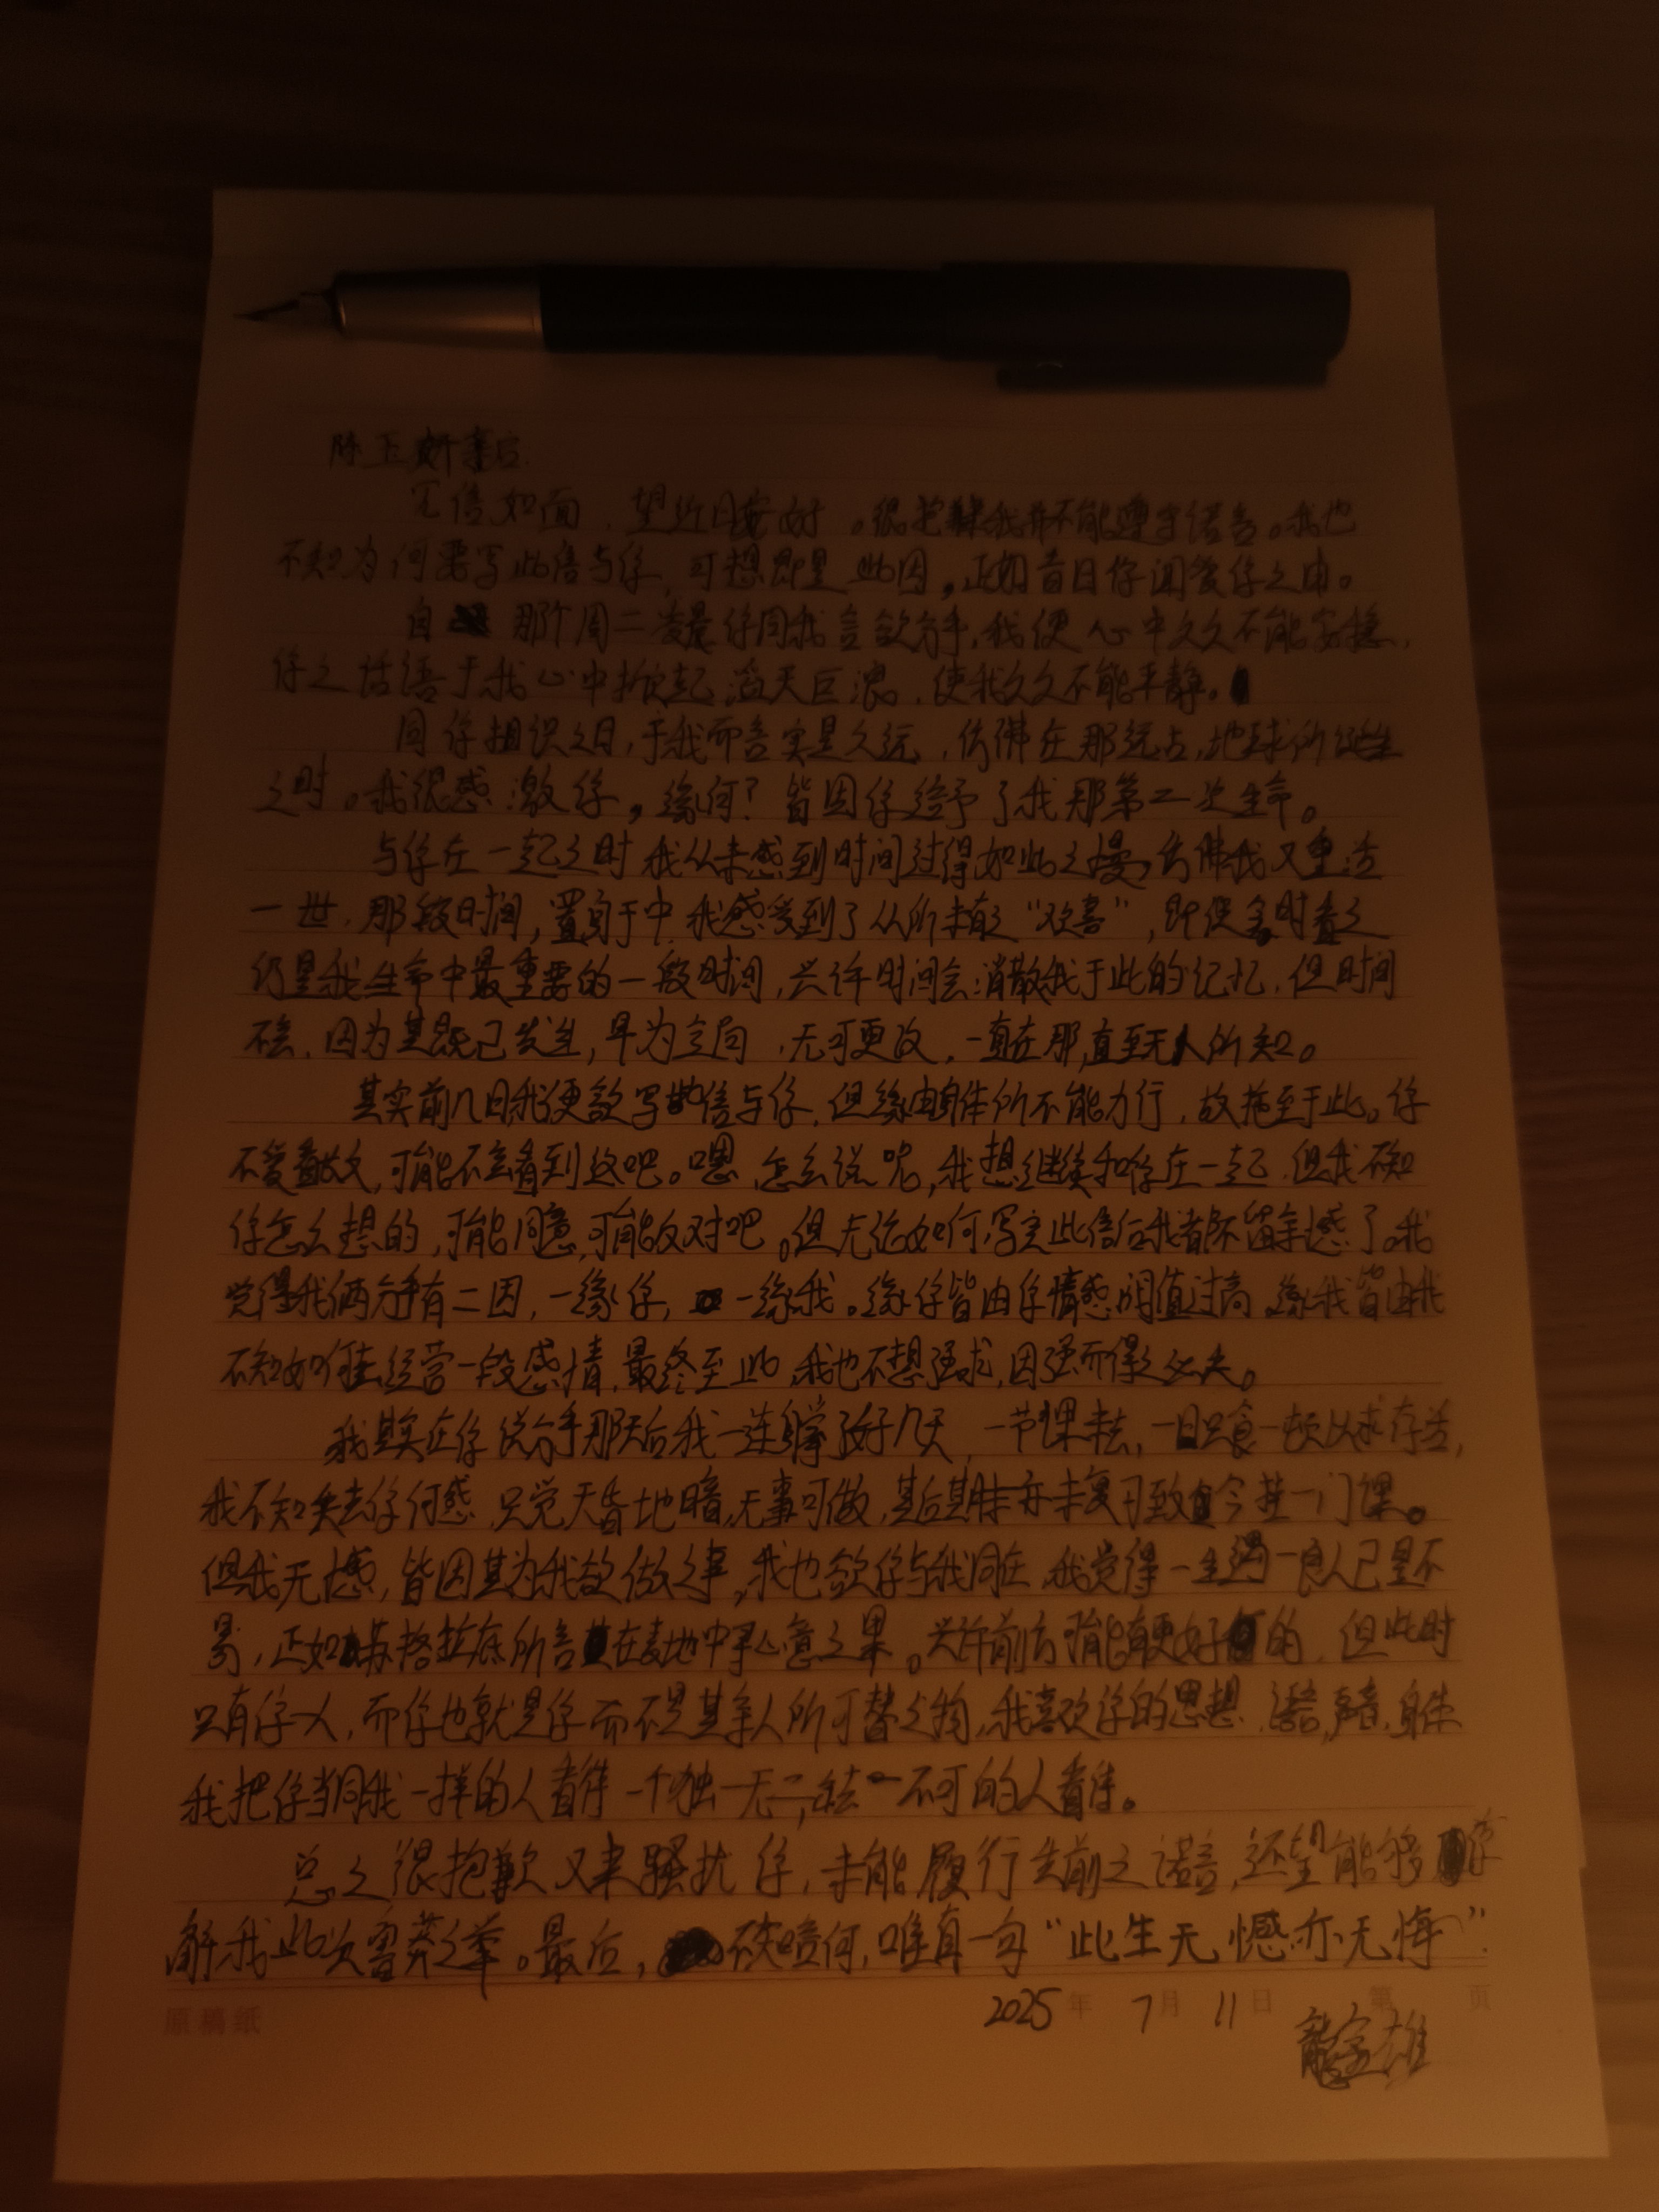 陈玉妍亲启
见信如面，望近日安好。很抱歉我并不能遵守诺言。我也
不知为何要写此信与你，可想即是此因，正如昔日你问爱你之由。
自 那个周二凌晨你同我言欲分手，我便心中久久不能安稳，
你之话语于我心中掀起滔天巨浪，使我久久不能平静。
同你相识之日，于我而言实是久远，仿佛在那远古，地球所诞生
之时。我很感激你，缘何？皆因你给予了我那第二次生命。
与你在一起之时我从未感到时间过得如此之慢，仿佛我又重活
一世，那段时间，置身于中，我感受到了从所未有之“欢喜”，即使多时看之
仍是我生命中最重要的一段时间，兴许时间会消散我于此的记忆，但时间
不会，因为其既已发生，早为定局，无可更改，一直在那，直至无人所知。
其实前几日我便欲写此信与你，但缘由身体所不能力行，故拖至于此。你
不爱看散文，可能不会看到这吧。嗯，怎么说呢，我想继续和你在一起，但我不知
你怎么想的，可能同意，可能反对吧。但无论如何，写完此信后我都不留余憾了。我
觉得我俩分手有二因，一缘你， 一缘我。缘你皆由你情感阈值过高，缘我皆由我
不知如何去经营一段感情，最终至此，我也不想强求，因强而得之必失。
我其实在你说分手那天后我一连躺了好几天，一节课未去，一日只食一顿以求存活，
我不知失去你何感，只觉天昏地暗，无事可做，其后其 亦未复习致使今挂一门课。
但我无憾，皆因其为我欲做之事，我也欲你与我同在，我觉得一生遇一良人已是不
易，正如苏格拉底所言其在麦地中寻心意之果。兴许前方可能有更好的，但此时
只有你一人，而你也就是你而不是其余人所可替之物，我喜欢你的思想，语言，声音，身体
我把你当同我一样的人看待一个独一无二，非去一不可的人看待。
总之很抱歉又来骚扰你，未能履行先前之诺言，还望能够 你
解我此次害莽之举。最后， 不知言何，唯有一句“此生无憾亦无悔”
原稿纸 2025年 7月 11日 第 页
龍宝雄